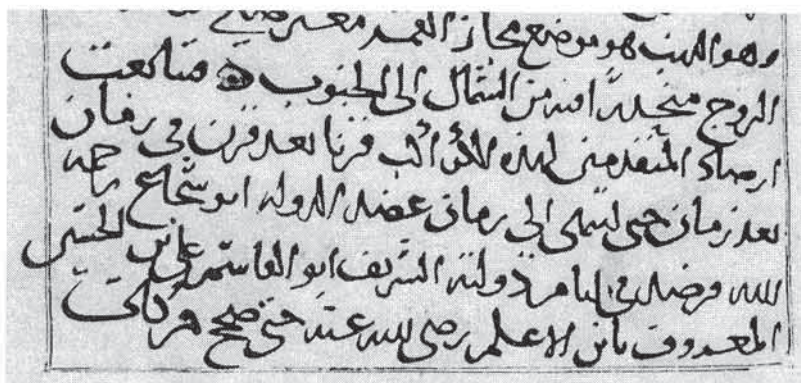 وهو الذنب هو موضع مجاز العمد معـ
الروج منحدرا منه من الشمال الى الجنوب ۞ فتتابعت
ارصاد المتقدمين لهذه الكواكب قرنا بعد قرن في زمان
بعد زمان حتى انتهى الى زمان عضد الدولة ابو شجاع رحمه
الله ورصد في ايام دولته الشريف ابو القاسم على بن الحسين
المعروف بابن الاعلم رضي الله عنه حتى صحح مركات